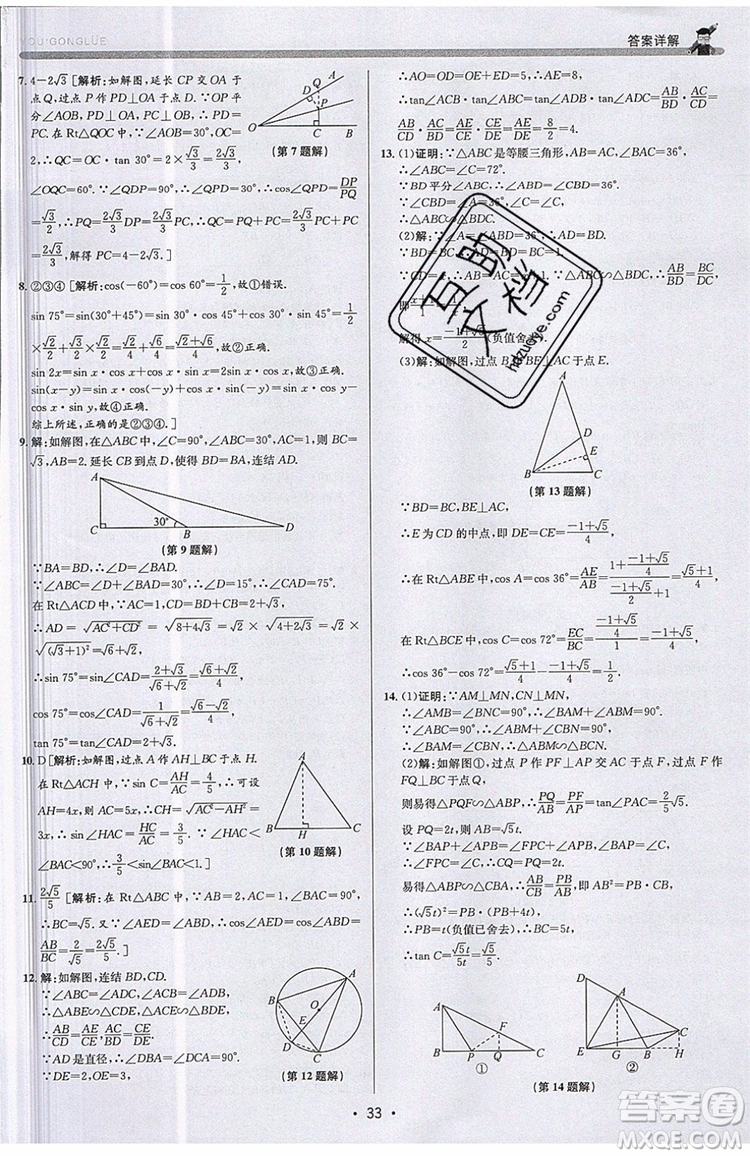 YOU GONGLÜE
答案详解
7. 4－2√3 [解析:如解图,延长 CP 交 OA 于
点 Q,过点 P 作 PD⊥OA 于点 D. ∵OP 平
分∠AOB,PC⊥OB,PD⊥OA,∴PD=
PC. 在 Rt△QOC 中,∵∠AOB=30°,OC=
2,∴QC=OC·tan 30°=2×√3/3=2√3/3,
∠OQC=60°. 在 Rt△QPD 中,∵cos∠OQC=DP/PQ
=√3/2,∴PQ=2√3/3 DP=2√3/3 PC,∴QC=PQ+PC=2√3/3 PC+PC=
2√3/3,解得 PC=4－2√3.]
(第 7 题解)
8. ②③④ [解析:cos(－60°)=cos60°=1/2,故①错误.
sin 75°=sin(30°+45°)=sin 30°·cos 45°+cos 30°·sin 45°=1/2
×√2/2+√3/2×√2/2=√2/4+√6/4=(√6+√2)/4,故②正确.
sin 2x=sin x·cos x+cos x·sin x=2sin x·cos x,故③正确.
sin(x－y)=sin x·cos(－y)+cos x·sin(－y)=sin x·cos y－
cos x·sin y,故④正确.
综上所述,正确的是②③④.]
9. 解:如解图,在△ABC 中,∠C=90°,∠ABC=30°,AC=1,则 BC=
√3,AB=2. 延长 CB 到点 D,使得 BD=AB,连结 AD.
A
C
30°
B
D
(第 9 题解)
∵BA=BD,∴∠D=∠BAD.
∵∠ABC=∠D+∠BAD=30°,∴∠D=15°,∴∠CAD=75°.
在 Rt△ACD 中,∵AC=1,CD=CB+BD=2+√3,
∴AD=√(AC²+CD²)=√(8+4√3)=√2×√(4+2√3)=√2×
√(√3+1)²=√6+√2,
∴sin 75°=sin∠CAD=(2+√3)/(√6+√2)=(√6+√2)/4,
cos 75°=cos∠CAD=1/(√6+√2)=(√6－√2)/4,
tan 75°=tan∠CAD=2+√3.
10. D [解析:如解图,过点 A 作 AH⊥BC 于点 H.
在 Rt△ACH 中,∵sin C=AH/AC=4/5,∴可设
AH=4x,则 AC=5x,∴CH=√(AC²－AH²)=
3x,∴sin∠HAC=HC/AC=3/5. ∵∠HAC<∠BAC,
∠BAC<90°,∴3/5<sin∠BAC<1.]
(第 10 题解)
11. 2√5/5 [解析:在 Rt△ABC 中,∵∠BAC=90°,AB=2,AC=1,
∴BC=√5. ∵∠AED=∠ABC,∴cos∠AED=cos∠ABC=
AB/BC=2/√5=2√5/5.]
12. 解:如解图,连结 BD,CD.
∵∠ABC=∠ADC,∠BAD=∠BCD,
∴△ABE∽△CDE,△ACE∽△BDE,
∴AB/CD=BE/DE,BD/AC=DE/CE,∴AB/CD·BD/AC=BE/CE.
∵AD 是直径,∴∠DBA=∠DCA=90°.
∵DE=2,OE=3,
(第 12 题解)
∴AO=OD=OE+ED=5,∴AE=8,
∴tan∠ACB·tan∠ABC=tan∠ADB·tan∠ADC=AB/BD·
AC/CD=AB/CD·AC/BD=BE/DE·CE/DE=AE/DE=8/2=4.
13. (1)证明:∵△ABC 是等腰三角形,AB=AC,∠BAC=36°,
∴∠ABC=∠C=72°.
∵BD 平分∠ABC,∴∠ABD=∠CBD=36°.
∵∠CBD=∠A=36°,∠C=∠C,
∴△ABC∽△BDC.
(2)解:∵∠A=∠ABD=36°,∴AD=BD.
∵BD=BC,∴AD=BD=BC=1.
解得 x=(－1+√5)/2(负值舍去).
(3)解:如解图,过点 B 作 BE⊥AC 于点 E.
A
D
E
B
C
(第 13 题解)
∵BD=BC,BE⊥AC,
∴E 为 CD 的中点,即 DE=CE=(－1+√5)/4,
∴在 Rt△ABE 中,cos A=cos 36°=AE/AB=((－1+√5)/4+1)/((－1+√5)/2+1)=(√5+1)/4.
在 Rt△BCE 中,cos C=cos 72°=EC/BC=((－1+√5)/4)/1=(－1+√5)/4,
∴cos 36°－cos 72°=(√5+1)/4－(－1+√5)/4=1/2.
14. (1)证明:∵AM⊥MN,CN⊥MN,
∴∠AMB=∠BNC=90°,∴∠BAM+∠ABM=90°.
∵∠ABC=90°,∴∠ABM+∠CBN=90°,
∴∠BAM=∠CBN,∴△ABM∽△BCN.
(2)解:如解图①,过点 P 作 PF⊥AP 交 AC 于点 F,过点 F 作
FQ⊥BC 于点 Q,
则易得△PQF∽△ABP,∴PQ/AB=FQ/PB=PF/AP=tan∠PAC=2√5/5.
设 PQ=2t,则 AB=√5t.
∵∠BAP+∠APB=∠FPC+∠APB=90°,∴∠BAP=∠FPC.
易得△ABP∽△CBA,∴AB/CB=BP/AB,
∴PB=t(负值已舍去),∴BC=5t,
∴tan C=√5t/5t=√5/5.
①
②
(第 14 题解)
互助文档
hdzuoye.com
· 33 ·
答案圈
MXQE.COM